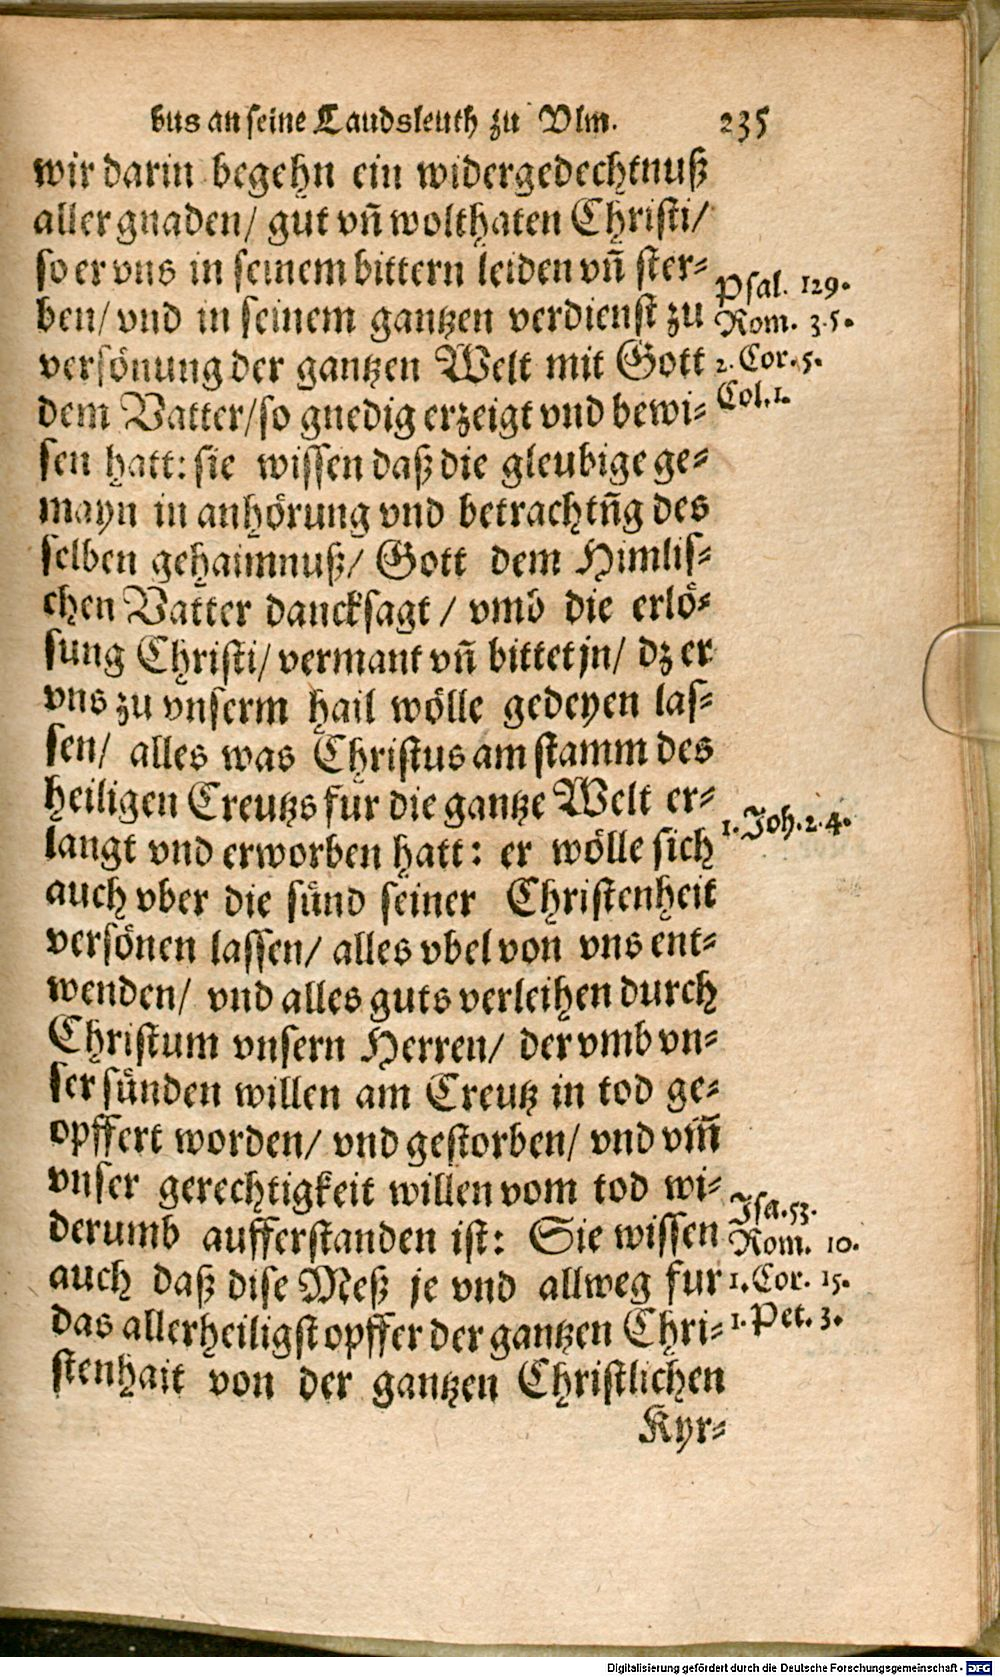 bus an seine Landsleuth zu Vlm. 235
wir darin begehn ein widergedechtnuß
aller gnaden/ gut vñ wolthaten Christi/
so er vns in seinem bittern leiden vñ ster⸗
ben/ vnd in seinem gantzen verdienst zu
versönung der gantzen Welt mit Gott
dem Vatter/ so gnedig erzeigt vnd bewi⸗
sen hatt: sie wissen daß die gleubige ge⸗
mayn in anhörung vnd betrachtñg des
selben gehaimnuß/ Gott dem Himlis⸗
chen Vatter dancksagt / vmb die erlö⸗
sung Christi/ vermant vñ bittet jn/ dz er
vns zu vnserm hail wölle gedeyen las⸗
sen/ alles was Christus am stamm des
heiligen Creutzs fur die gantze Welt er⸗
langt vnd erworben hatt: er wölle sich
auch vber die sünd seiner Christenheit
versönen lassen/ alles vbel von vns ent⸗
wenden/ vnd alles guts verleihen durch
Christum vnsern Herren/ der vmb vn⸗
ser sünden willen am Creutz in tod ge⸗
opffert worden/ vnd gestorben/ vnd vm̃
vnser gerechtigkeit willen vom tod wi⸗
derumb aufferstanden ist: Sie wissen
auch daß dise Meß je vnd allweg fur
das allerheiligst opffer der gantzen Chri⸗
stenhait von der gantzen Christlichen
Kyr⸗
Psal. 129.
Rom. 3.5.
2. Cor. 5.
Col. 1.
1. Joh. 2.4.
Jsa. 53.
Rom. 10.
1. Cor. 15.
1. Pet. 3.
Digitalisierung gefördert durch die Deutsche Forschungsgemeinschaft - DFG